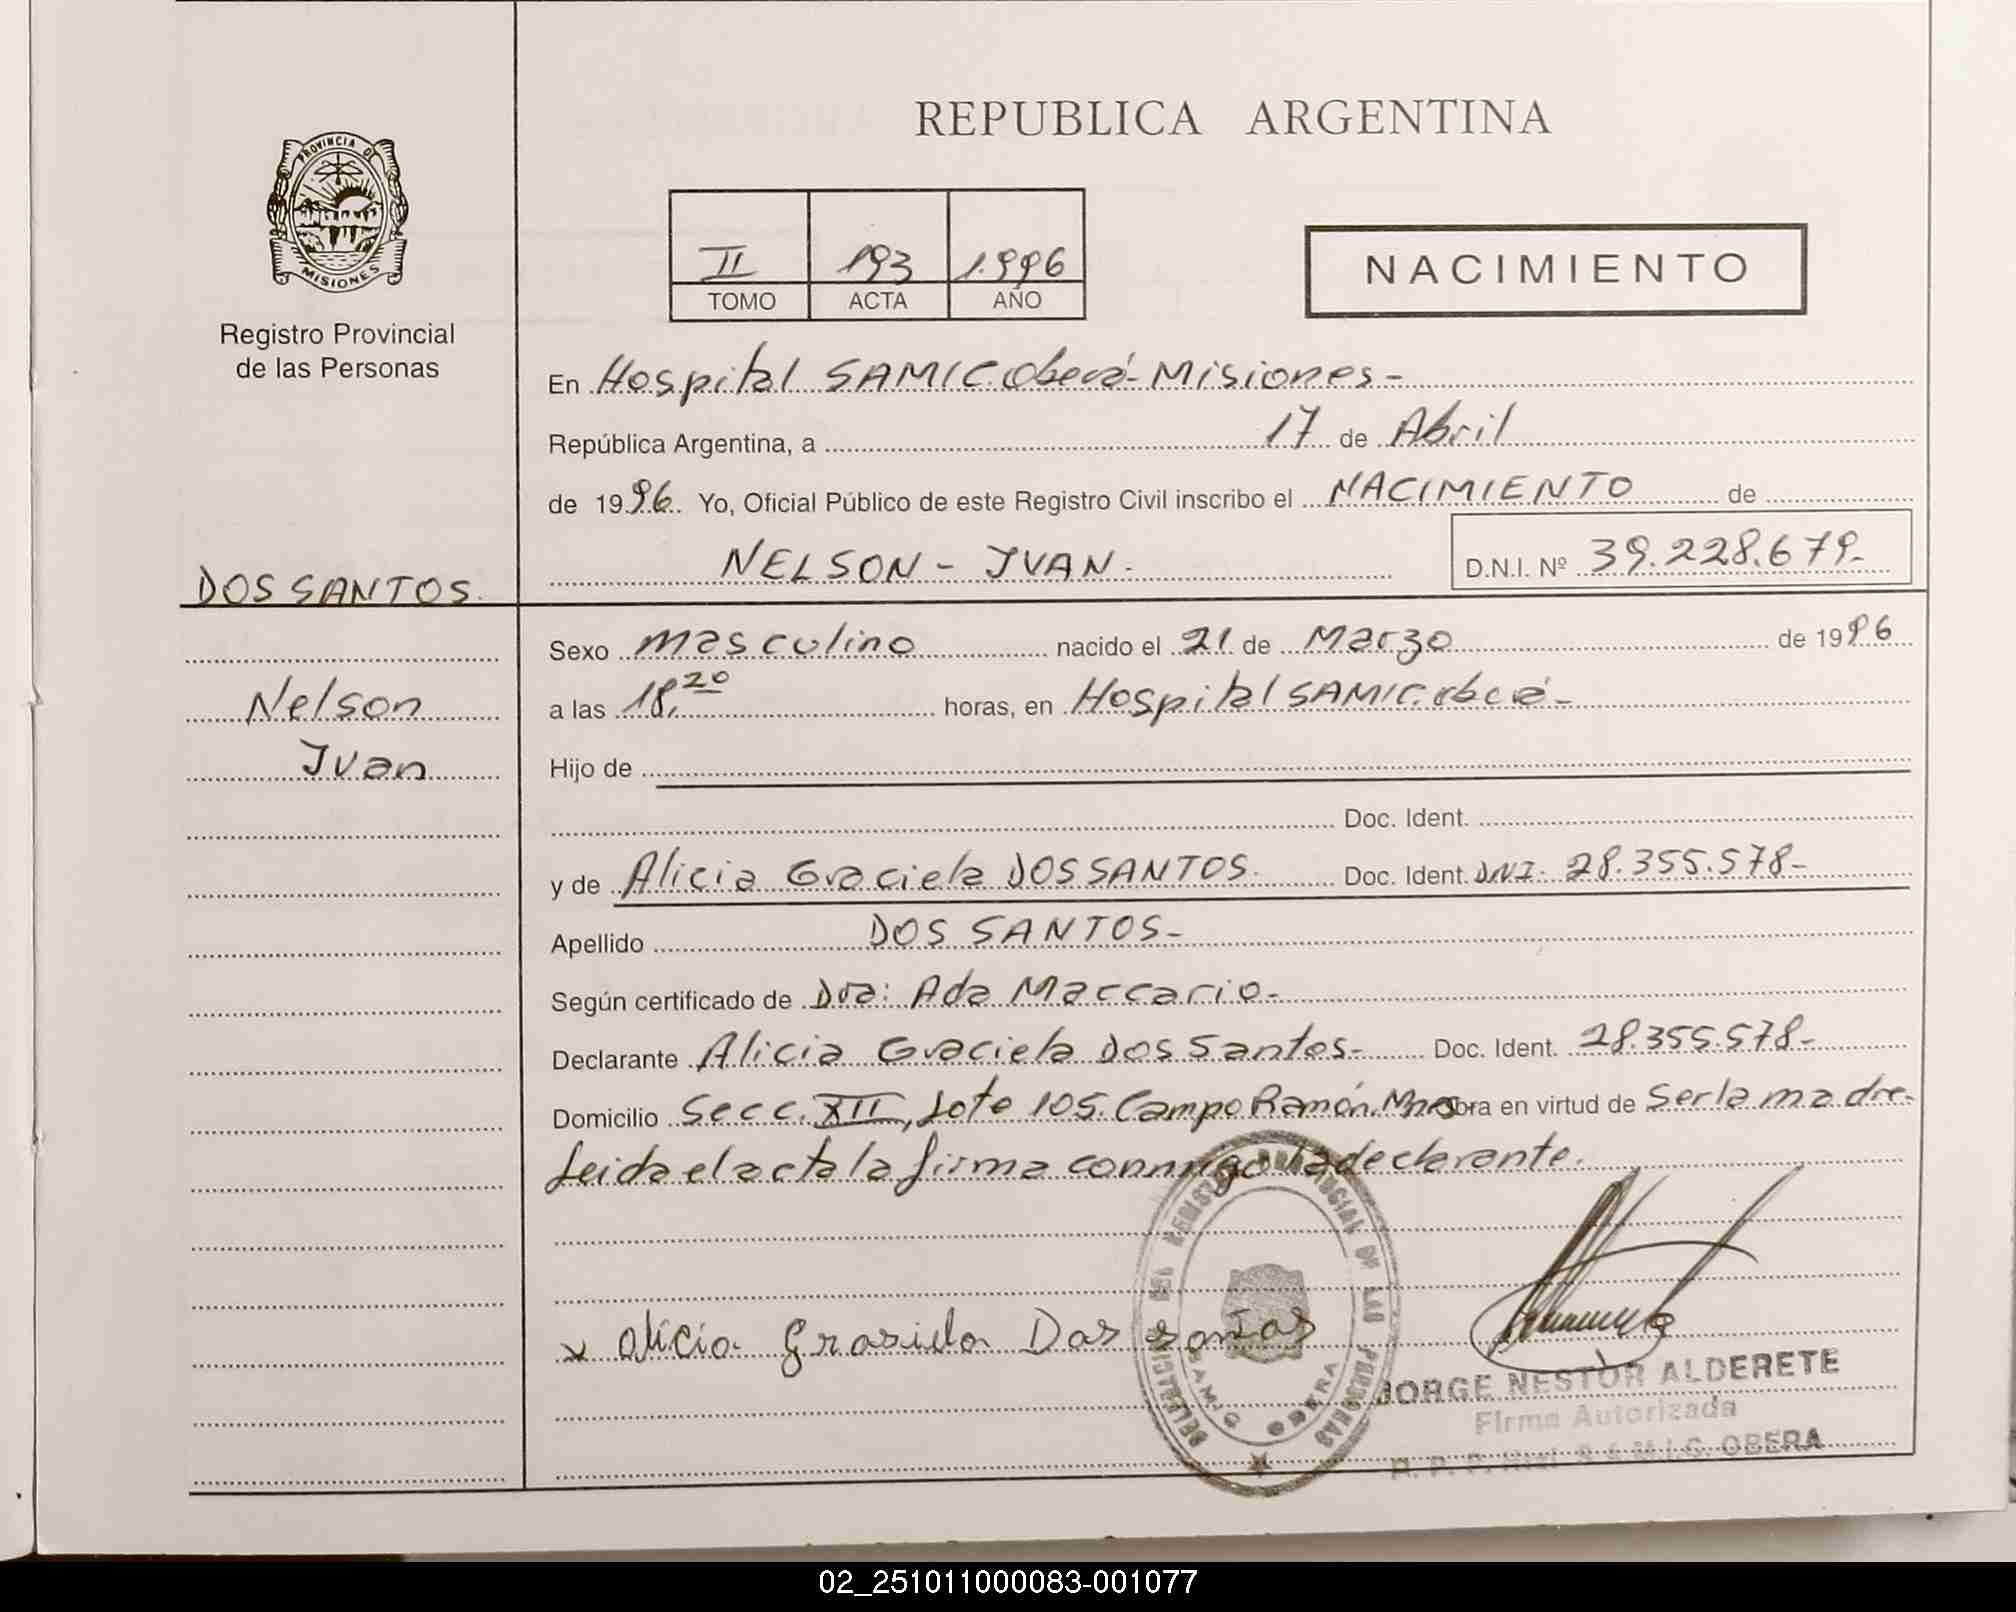 REPUBLICA ARGENTINA
PROVINCIA DE
MISIONES
Registro Provincial
de las Personas
II 193 1.996
TOMO ACTA AÑO
NACIMIENTO
En Hospital SAMIC. Oberá - Misiones -
República Argentina, a 17 de Abril
de 1996. Yo, Oficial Público de este Registro Civil inscribo el NACIMIENTO de
NELSON - IVAN. D.N.I. Nº 39.228.679-
DOS SANTOS.
Nelson
Ivan
Sexo masculino nacido el 21 de Marzo de 1996
a las 18,20 horas, en Hospital SAMIC. Oberá -
Hijo de
Doc. Ident.
y de Alicia Graciela DOS SANTOS. Doc. Ident. DNI. 28.355.578-
Apellido DOS SANTOS-
Según certificado de Dra: Ada Maccario-
Declarante Alicia Graciela Dos Santos- Doc. Ident. 28.355.578-
Domicilio Secc. XII, Lote 105. Campo Ramón. Mnes obra en virtud de Ser la madre-
Leida el acta la firma conmigo la declarante.
x Alicia Grasiela Dos santos
DELEGACION DEL REGISTRO PROVINCIAL DE LAS PERSONAS
SAMIC OBERA
JORGE NESTOR ALDERETE
Firma Autorizada
R. P. P. Htal S.A.M.I.C. OBERA
02_251011000083-001077